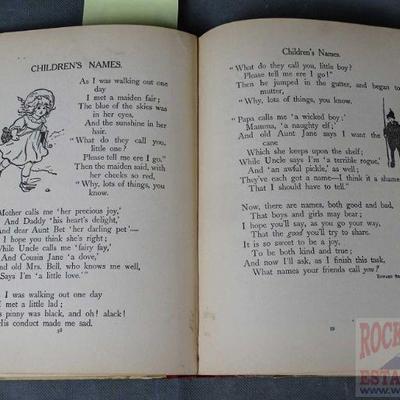 CHILDREN'S NAMES.
As I was walking out one
day
I met a maiden fair;
The blue of the skies was
in her eyes,
And the sunshine in her
hair.
"What do they call you,
little one?
Please tell me ere I go."
Then the maiden said, with
her cheeks so red,
"Why, lots of things, you
know.
Mother calls me 'her precious joy,'
And Daddy 'his heart's delight,'
And dear Aunt Bet 'her darling pet'—
I hope you think she's right;
While Uncle calls me 'fairy fay,'
And Cousin Jane 'a dove,'
And old Mrs. Bell, who knows me well,
Says I'm 'a little love.'"
As I was walking out one day
I met a little lad;
His pinny was black, and oh! alack!
His conduct made me sad.
58
Children's Names.
"What do they call you, little boy?
Please tell me ere I go!"
Then he jumped in the gutter, and began to
mutter,
"Why, lots of things, you know.
"Papa calls me 'a wicked boy,'
Mamma, 'a naughty elf;'
And old Aunt Jane says I want the
cane
Which she keeps upon the shelf;
While Uncle says I'm 'a terrible rogue,'
And 'an awful pickle,' as well;
They've each got a name—I think it a shame
That I should have to tell."
Now, there are names, both good and bad,
That boys and girls may bear;
I hope you'll say, as you go your way,
That the good you'll try to share.
It is so sweet to be a joy,
To be both kind and true;
And now I'll ask, as I finish this task,
What names your friends call you?
EDWARD
59
ROCK
ESTA